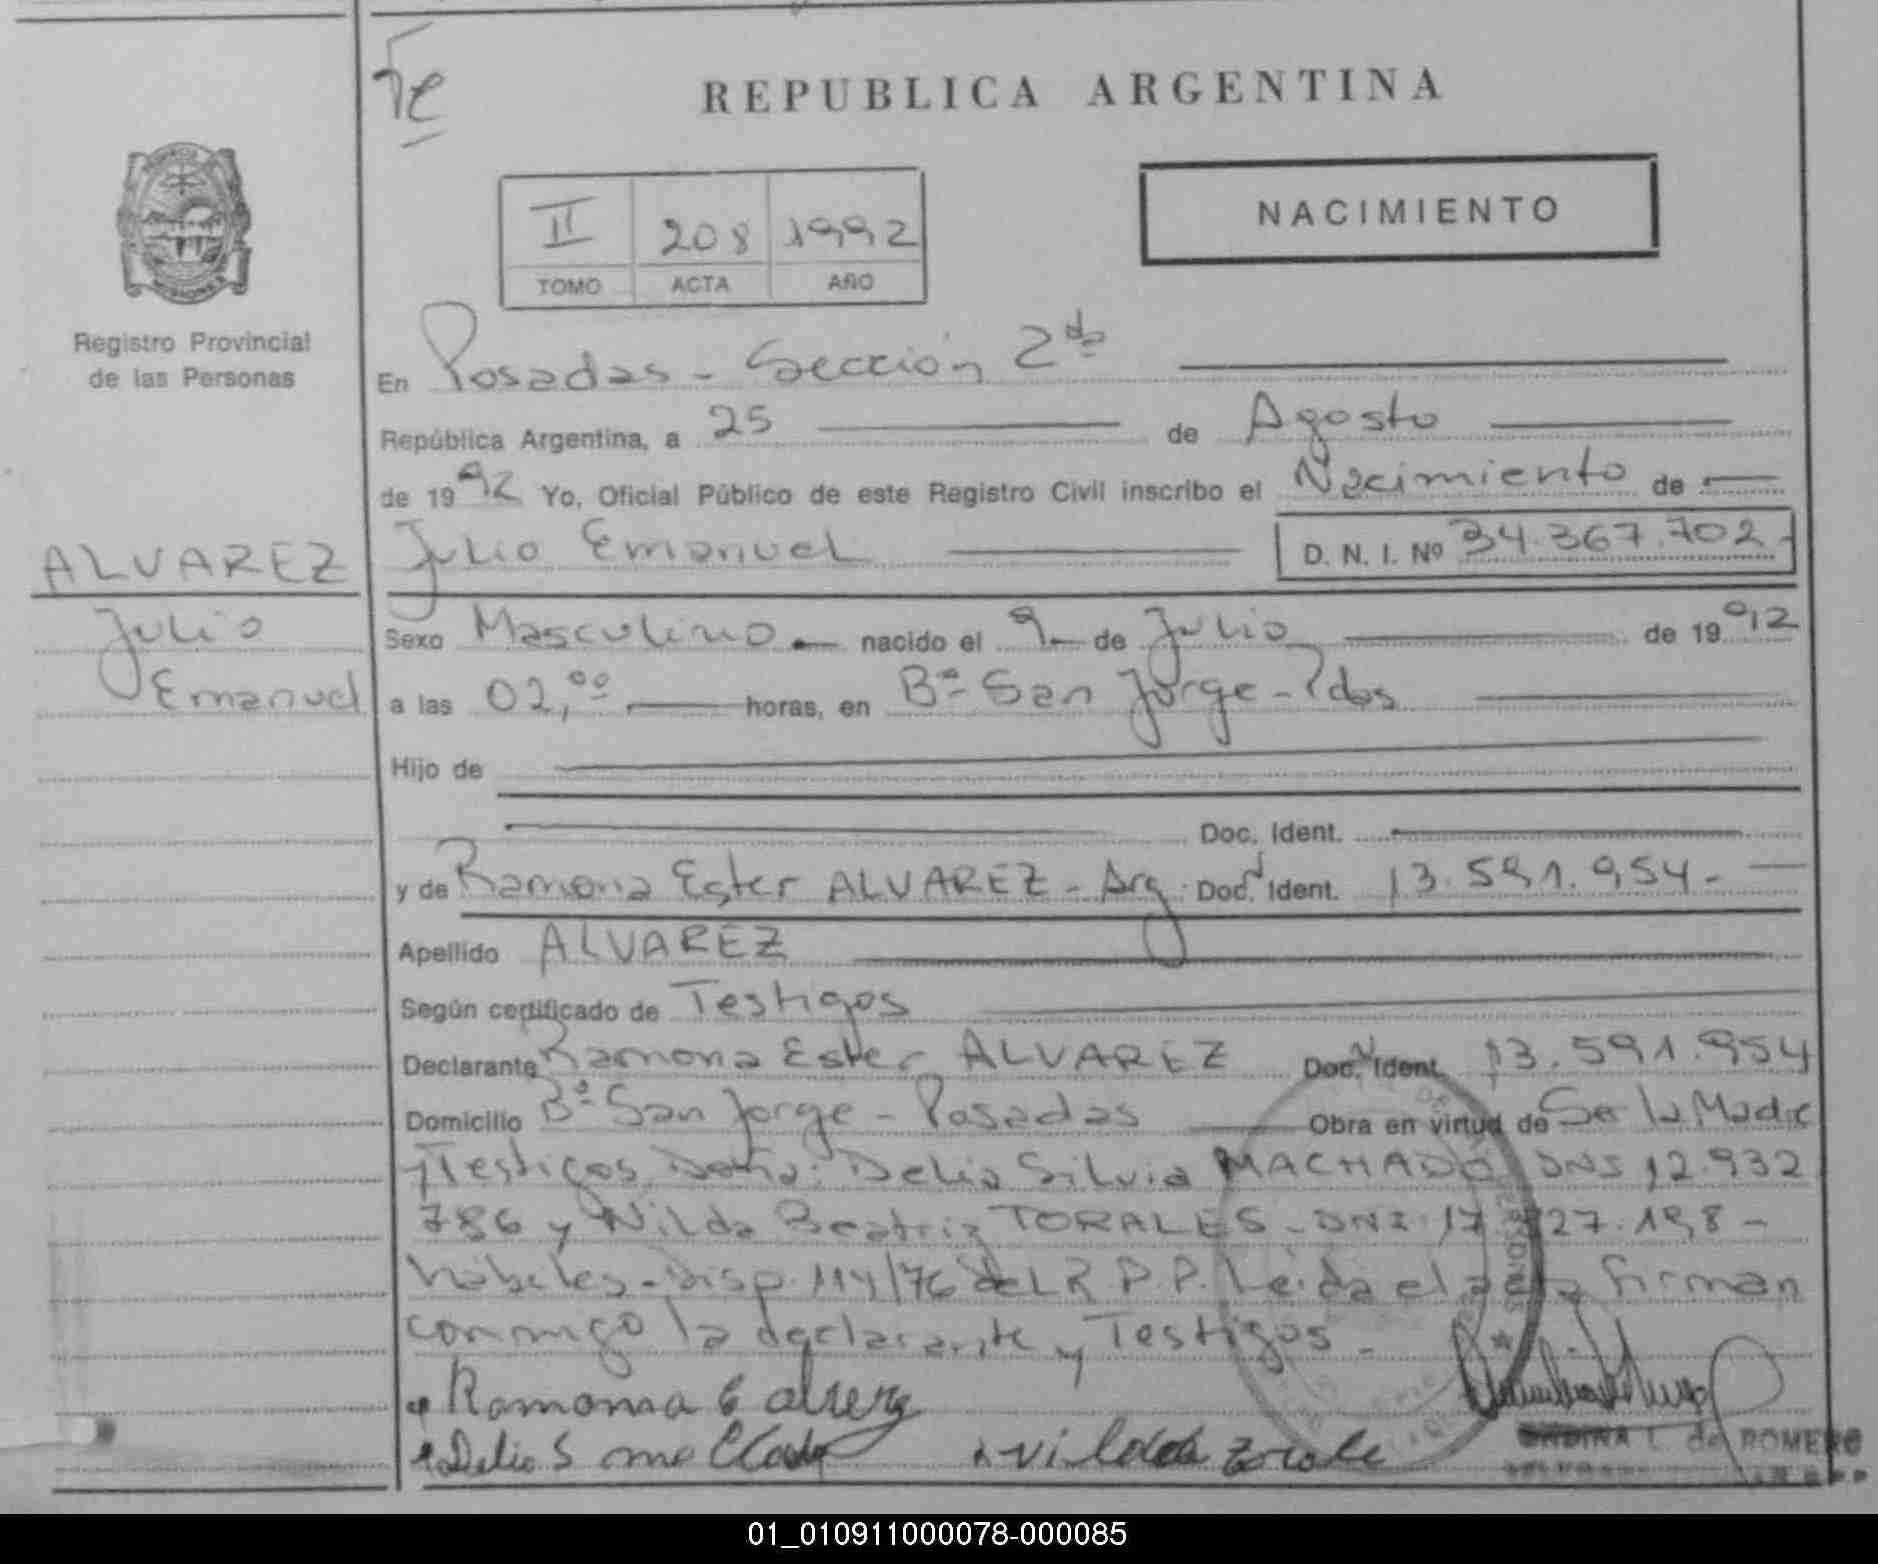 Te
REPUBLICA ARGENTINA
NACIMIENTO
II 208 1992
TOMO ACTA AÑO
MISIONES
Registro Provincial
de las Personas
En Posadas - Sección 2da
República Argentina, a 25 de Agosto
de 1992 Yo, Oficial Público de este Registro Civil inscribo el Nacimiento de
Julio Emanuel D. N. I. Nº 34.367.702.-
ALVAREZ
Julio
Emanuel
Sexo Masculino.- nacido el 9- de Julio de 1992
a las 02,00 horas, en Bº San Jorge - Pdas
Hijo de
Doc. Ident.
y de Ramona Ester ALVAREZ - Arg. Doc. Ident. 13.591.954.-
Apellido ALVAREZ
Según certificado de Testigos
Declarante Ramona Ester ALVAREZ Doc. Ident. 13.591.954
Domicilio Bº San Jorge - Posadas Obra en virtud de Ser la Madre
y Testigos Doña: Delia Silvia MACHADO DNI 12.932
786 y Nilda Beatriz TORALES - DNI 17. 27.198 -
habeles - Disp. 114/76 del R.P.P. Leida el acta firman
conmigo la declarante y Testigos -
Ramona E Alverz
Delia S
L. de ROMERO
01_010911000078-000085